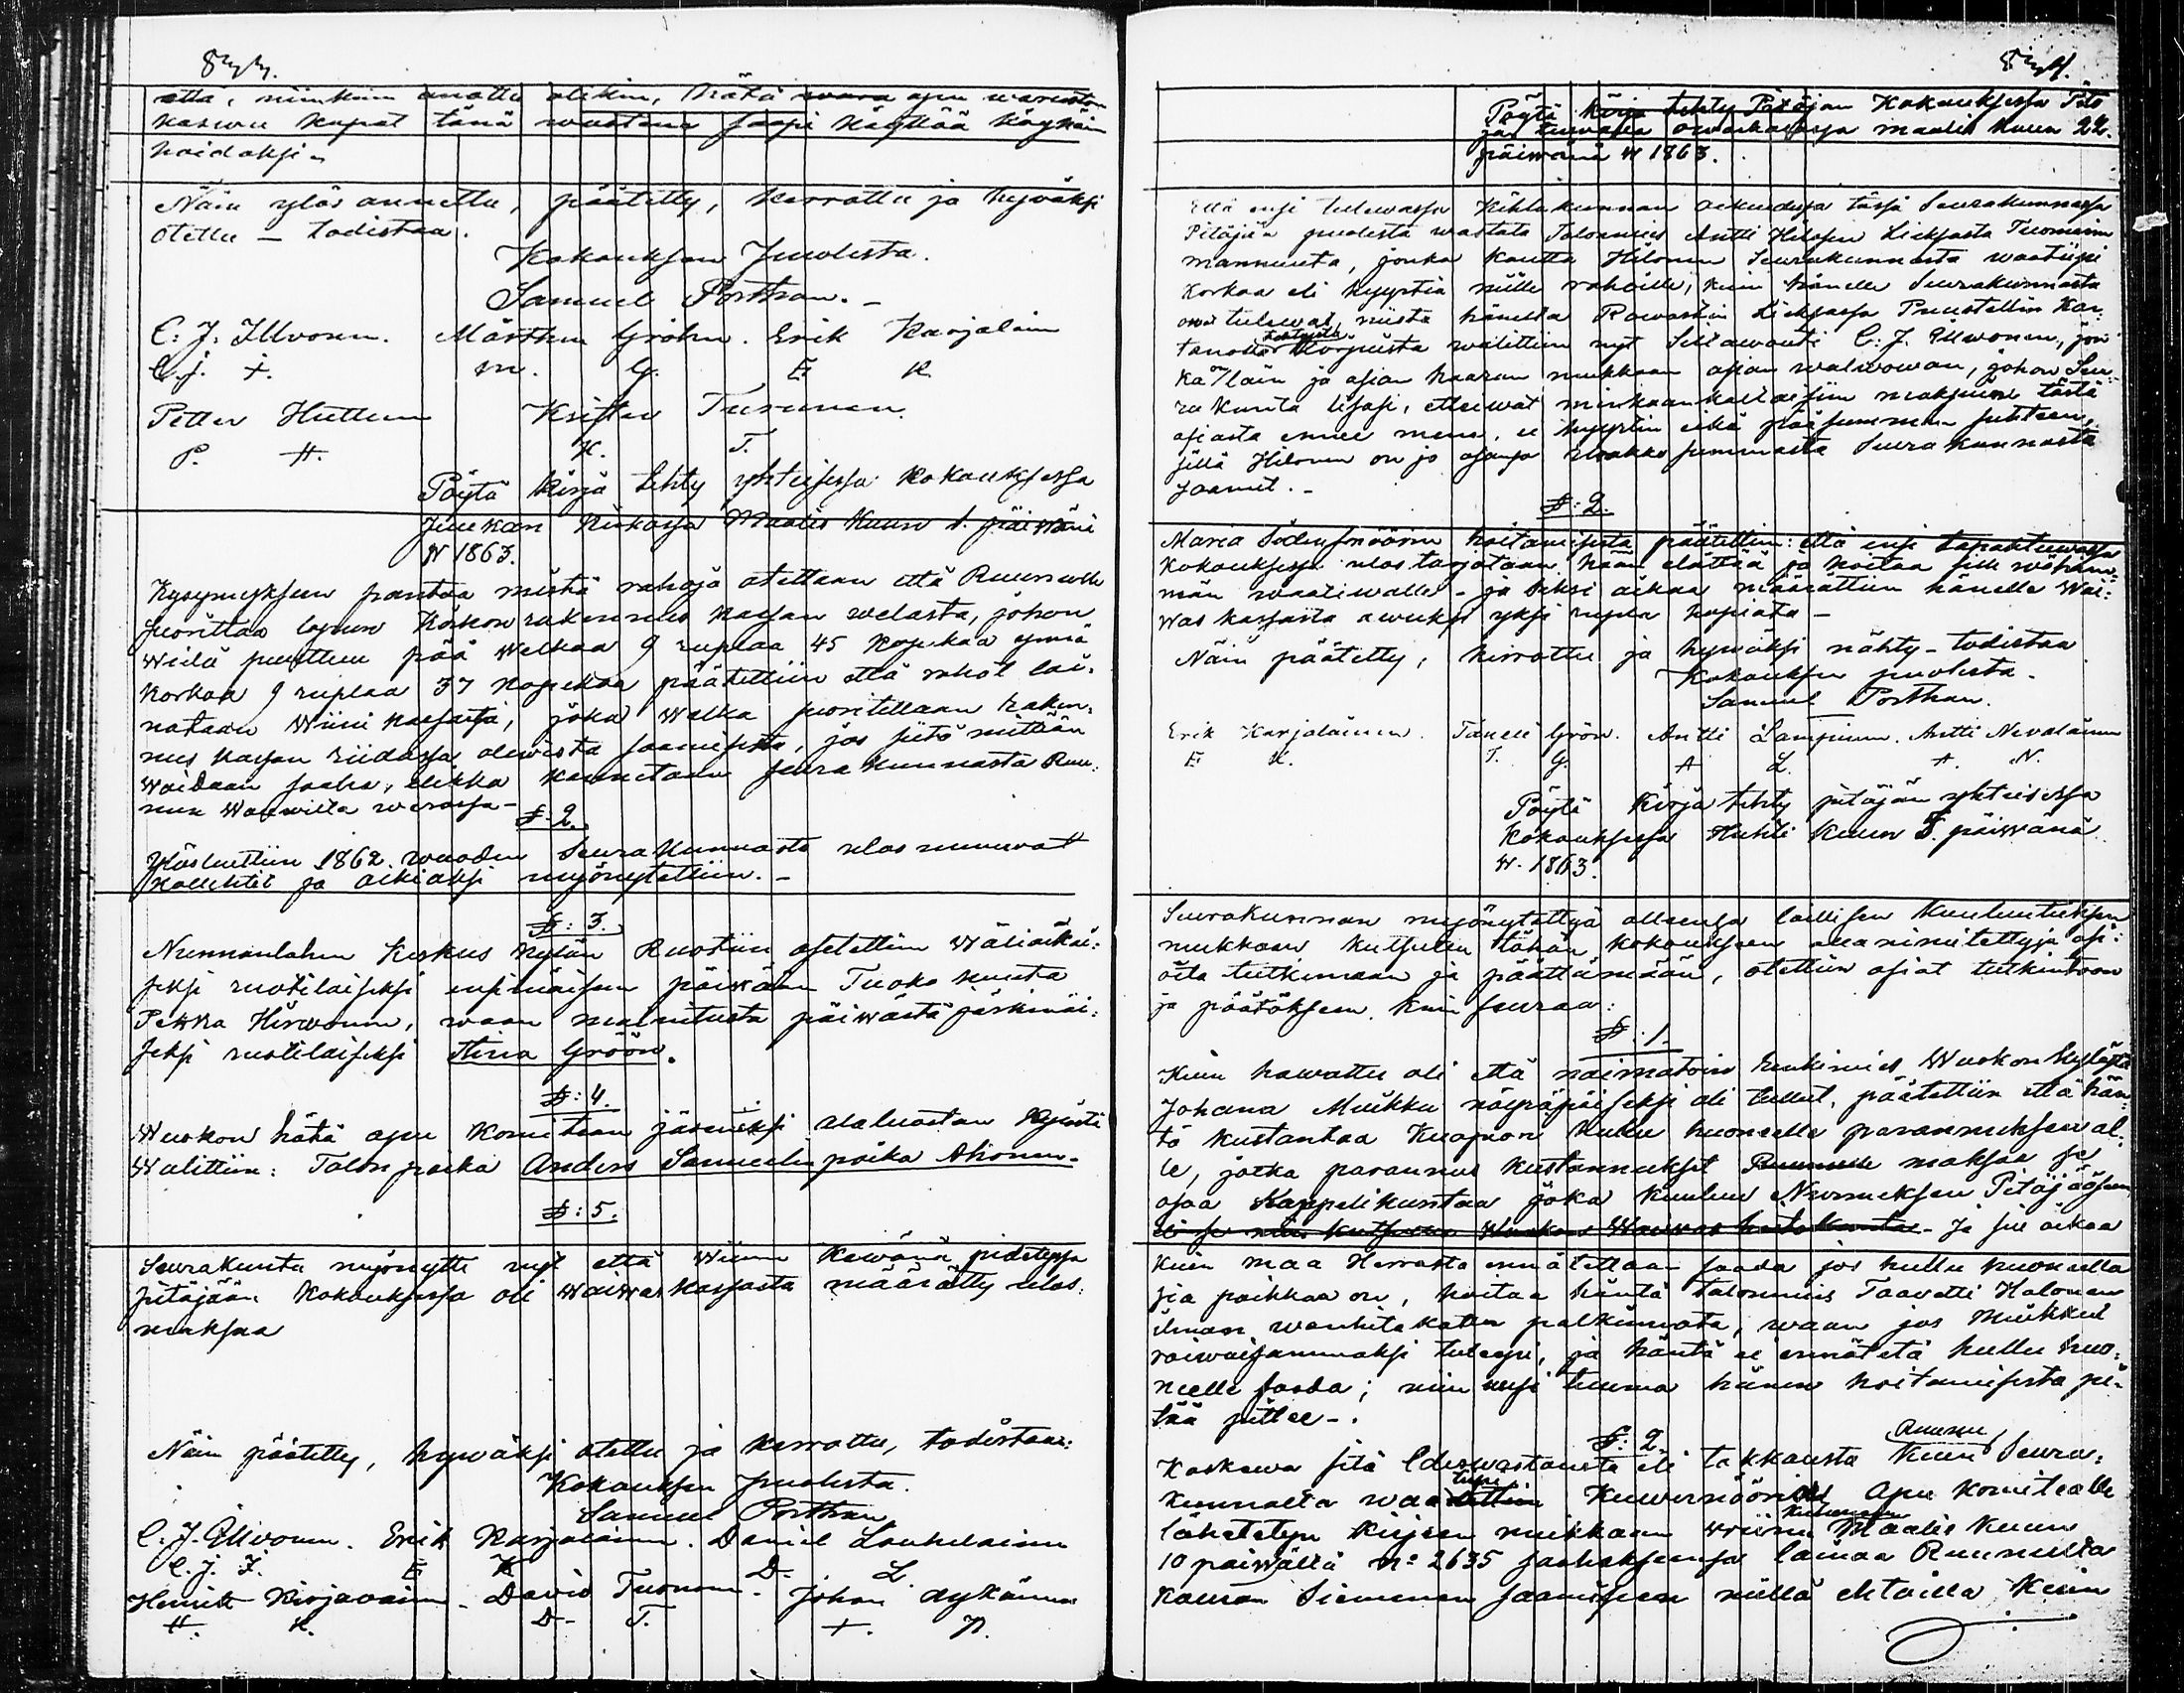 että, niinkuin anottu olikin, hätä apu warasto
kaswu kapat tänä wuotena saapi käyttää köyhäin
hoidoksi.
Näin ylös annettu, päätetty, kerrottu ja hywäksi
otettu – todistaa.
Kokouksen Puolesta.
Samuel Porthan. –
C. J. Illvonen. Mårthen Gröhn. Erik Karjalain
C. J. I. M. G. E K
Petter Huttunen Krister Turunen.
P. H. K. T.
Pöytä kirja tehty yhteisessä kokouksessa
Juukan kirkossa Maalis kuun 1. päiwänä
W 1863.
Kysymyksen pantua mistä rahoja otettaan että Ruunulle
suorittaa lopun kirkon rakennus kassan welasta, johon
wielä puuttuu pää welkaa 9 ruplaa 45 kopekaa ynnä
korkoa 9 ruplaa 37 kopekaa päätettiin että rahat lai-
nataan Wiini kassasta, joka welka suoritellaan raken-
nus kassan riidassa olewista saamisista, jos siitä mitään
woidaan saaha, elikkä kannetaan seurakunnasta Ruu-
nun wouwilta werossa –
§ 2.
Ylösluettiin 1862 wuoden Seurakunnasta ulos menewät
kollehtit ja oikiaksi myönytettiin. –
§: 3.
Nunnanlahen Keskus kylän Ruotiin asetettiin wäliaikai-
seksi ruotilaiseksi ensimäisen päiwän Tuoko kuuta
Pekka Hirwonen, waan mainitusta päiwästä järkinäi-
seksi ruotilaiseksi Stina Gröön.
§: 4.
Wuokon hätä apu komitean jäseneksi
Walittiin: Talon poika Anders Samuelin poika Ahonen.
§: 5.
Seurakunta myönytti nyt että wiime kewänä pidetyssä
pitäjään kokouksessa oli waiwas kassasta määrätty ulos-
maksaa
Näin päätetty, hywäksi otettu ja kerrottu, todistaa:
Kokouksen puolesta.
Samuel Porthan
C. J. Illvonen. Erik Karjalainen. Daniel Louhelainen
C. J. I. E K D. L.
Henrik Kirjavain. David Turonen. Johan Nykänen
H. K. D. T. I. N.
Pöytä kirja tehty Pitäjän Kokouksessa Pito
ja maalis kuun 22.
päiwänä W 1863.
Että ensi tulewassa Kihlakunnan oikeudessa tässä Seurakunnassa
Pitäjän puolesta wastata Talonmies Antti Hilosen Lieksasta Tuomion
mannuuta, jonka kautta Hilonen Seurakunnasta waatiipi
korkoa eli hyyrtiä niille rahoille, kuin hänelle Seurakunnasta
owat tulewat, niistä häneltä Rowastin Lieksassa Puustellin Kar-
tanolla tehdyistä töistä walittiin nyt Siltawouti C. J. Illwonen, jon
ka on lain ja asian haaran mukkaan asian walwowan, johon Seu-
rakunta lisäsi, etteiwät minkäänkaltaisiin maksuin tästä
asiasta ennee mene, ei hyyrtiin eikä pääsumman suhteen,
sillä Hilonen on jo ajanja urakka summasta Seurakunnasta
saanut. –
§: 2.
Maria Söderströmin hoitamisesta päätettiin: että ensi tapahtuwassa
kokouksessa ulos tarjotaan hään elättää ja hoitaa sille wähim-
män waatiwalle – ja siksi aikaa määrättiin hänelle Wai-
was kassasta awuksi yksi rupla hopiata –
Näin päätetty, kerrottu ja hywäksi nähty – todistaa
Kokouksen puolesta.
Samuel Porthan.
Erik Karjalainen. Taneli Grön. Antti Lampinen. Antti Nevalainen
E K. T. G. A L. A. N.
Pöytä kirja tehty pitäjän yhteisessä
Kokouksessa Huhti kuun 5. päiwänä
W. 1863.
Seurakunnan myönytettyä olleensa laillisen kuulutuksen
mukkaan kutsuttu tähän kokoukseen alla nimitettyjä asi-
oita tutkimaan ja päättämään, otettiin asiat tutkintoon
ja päätökseen kuin seuraa:
§: 1.
Kuin hawattu oli että naimatoin renkimies Wuokon kylästä
Johana Muikku nöyräpäiseksi oli tullut, päätettiin että hän-
tä kustantaa Kuopion hullu huoneelle parannuksen al-
le, jotka parannus kustannukset Ruunulle maksaa se
osaa Kappelikuntaa joka kuuluu Nurmeksen Pitäjääseen
ja sill aikaa
kuin maa Herrasta ennätettään saada jos hullu huoneella
sia paikkaa on, hoitaa häntä talonmies Taavetti Halonen
ilman wanhita katta palkinnota, waan jos Muikku
raiwoisammaksi tuleepi, ja häntä ei ennätetä hullu huo-
neelle saada; niin uusi tuuma hänen hoitamisesta pi-
tää pittee –.
§: 2.
Koskewa sitä Edeswastausta eli takkausta Ruunu kuin Seura-
kunnalta waadittiin Kuwernöörin Apu komitealle
lähetetyn kirjeen mukkaan wiime kuluneen Maalis kuun
10 päiwältä No 2635 saahaksensa lainaa Ruunulta
kauran Siemenen saamiseen niillä ehtoilla kuin